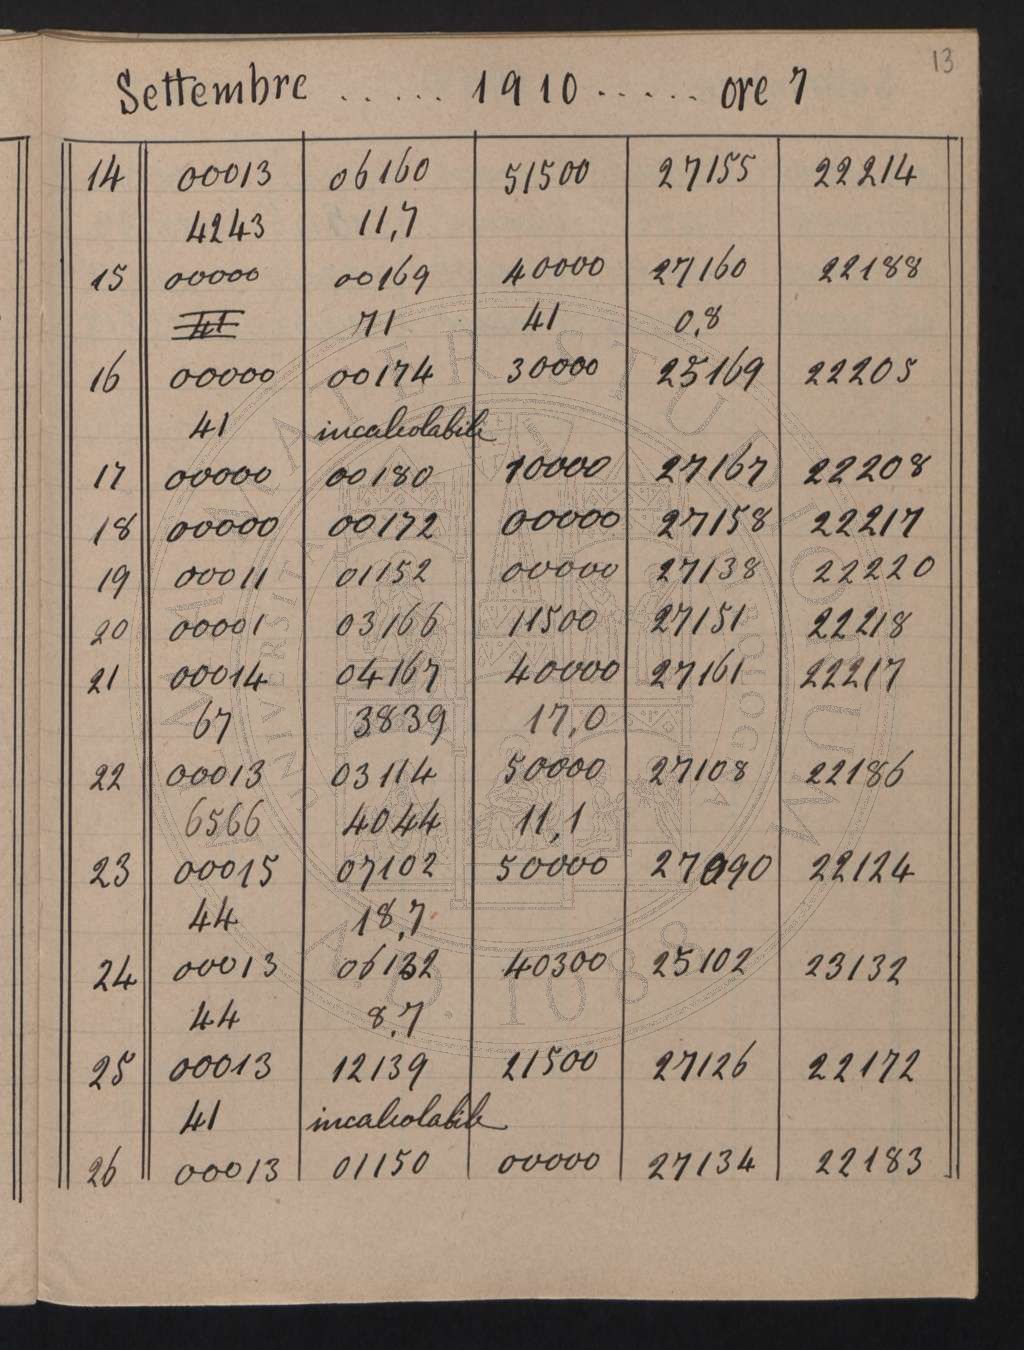 13
Settembre ..... 1910 ..... ore 7
14 00013 06160 51500 27155 22214
4243 11,7
15 00000 00169 40000 27160 22188
41 71 41 0,8
16 00000 00174 30000 25169 22205
41 incalcolabile
17 00000 00180 10000 27167 22208
18 00000 00172 00000 27158 22217
19 00011 01152 00000 27138 22220
20 00001 03166 11500 27151 22218
21 00014 04167 40000 27161 22217
67 3839 17,0
22 00013 03114 50000 27108 22186
6566 4044 11,1
23 00015 07102 50000 27090 22124
44 18,7
24 00013 06132 40300 25102 23132
44 8,7
25 00013 12139 21500 27126 22172
41 incalcolabile
26 00013 01150 00000 27134 22183
ALMA MATER STUDIORUM
UNIVERSITÀ DI BOLOGNA
A.D. 1088